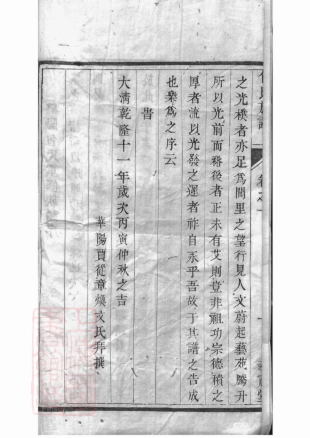 之光樸者亦足爲閭里之望行見人文蔚起藝苑騰升
所以光前而裕後者正未有艾則豈非祖功宗德積之
厚者流以光發之遲者祚自永乎吾故于其譜之告成
也樂爲之序云
旹
大清乾隆十一年歲次丙寅仲秋之吉
華陽賈從章煥文氏拜撰